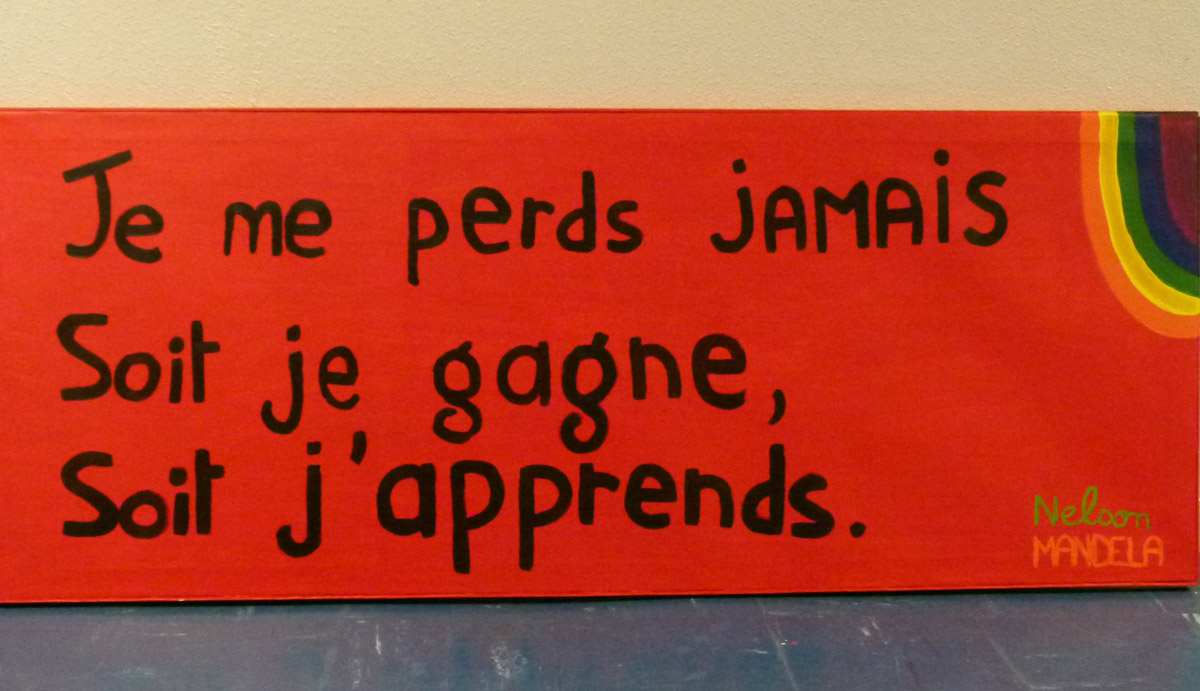 Je me perds jAMAiS
Soit je gagne,
Soit j'apprends.
Nelson
MANDELA